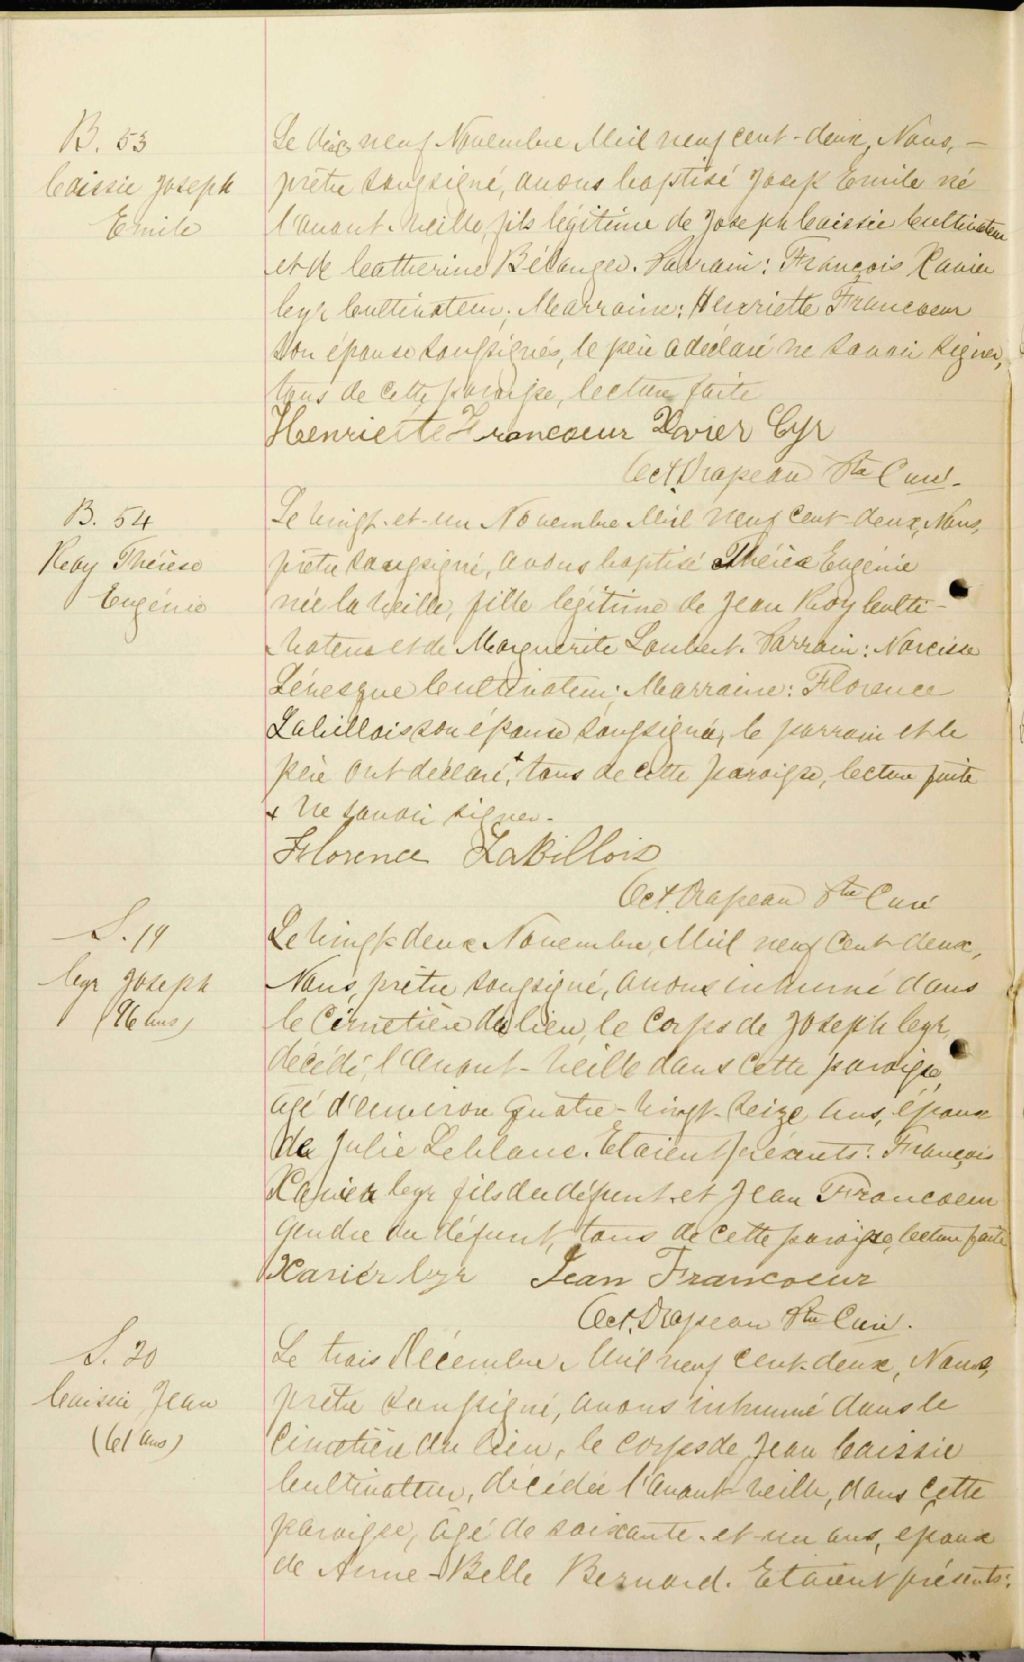 B. 53
Caissie Joseph
Emile
Le dix neuf Novembre Mil neuf cent-deux, Nous, —
prêtre soussigné, avons baptisé Josep Emile né
l'avant-veille, fils légitime de Joseph Caissie Cultivateur
et de Catherine Bélanger. Parrain: François Xavier
Cyr Cultivateur; Marraine: Henriette Francoeur
son épouse soussignés, le père a déclaré ne savoir signer,
tous de cette paroisse, lecture faite
Henriette Francoeur Xavier Cyr
Oct. Drapeau Ptre Curé.
B. 54
Roy Thérèse
Eugénie
Le vingt-et-un Novembre Mil neuf cent-deux, Nous,
prêtre soussigné, avons baptisé Thérèse Eugénie
née la veille, fille légitime de Jean Roy Culti-
vateur et de Marguerite Loubert. Parrain: Narcisse
Lévesque Cultivateur; Marraine: Florence
Labillois son épouse soussignée, le parrain et le
père ont déclaré,+ tous de cette paroisse, lecture faite
+ ne savoir signer.
Florence LaBillois
Oct. Drapeau Ptre Curé
S. 19
Cyr Joseph
(96 ans)
Le vingt-deux Novembre, Mil neuf cent-deux,
Nous, prêtre soussigné, avons inhumé dans
le Cimetière du lieu, le corps de Joseph Cyr,
décédé, l'avant-veille dans cette paroisse,
âgé d'environ quatre-vingt-seize ans, époux
de Julie Leblanc. Etaient présents: François
Xavier Cyr fils du défunt, et Jean Francoeur
gendre du défunt, tous de cette paroisse, lecture faite
Xavier Cyr Jean Francoeur
Oct. Drapeau Ptre Curé.
S. 20
Caissie Jean
(61 ans)
Le trois Décembre Mil neuf cent-deux, Nous,
prêtre soussigné, avons inhumé dans le
Cimetière du lieu, le corps de Jean Caissie
Cultivateur, décédé l'avant-veille, dans cette
paroisse, âgé de soixante-et-un ans, époux
de Anne-Belle Bernard. Etaient présents: